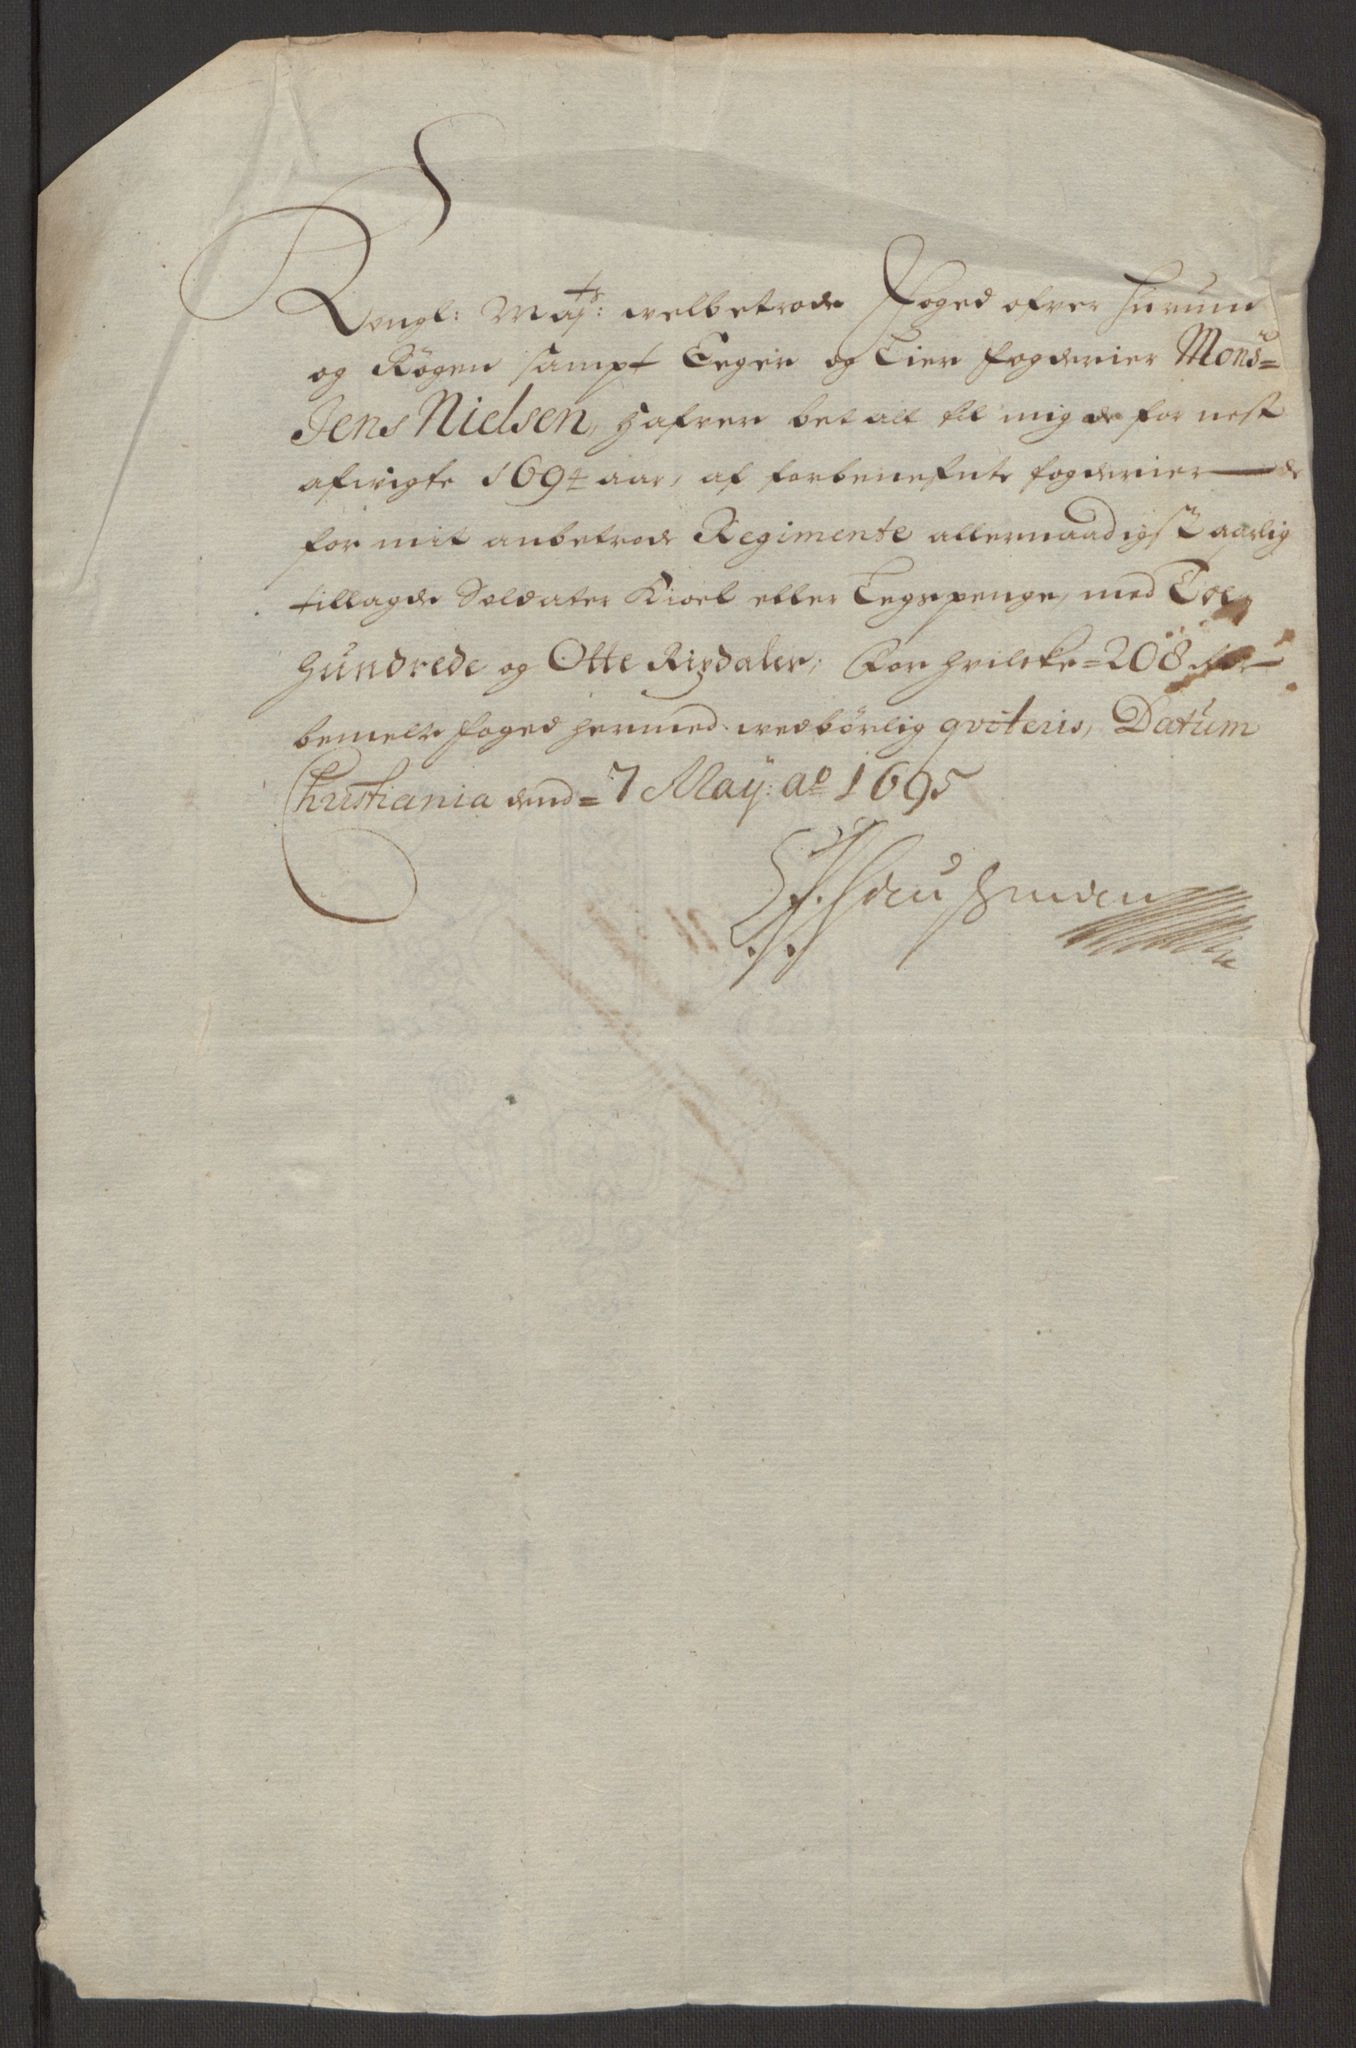 Kongl: Maÿts: welbetrode Foged ofver Hurum
og Røgen sampt Eeger og Eier fogderier Monsr=
Jens Nielsen, hafver betalt til mig de for nest
afvigte 1694 aar, af forbenefnte fogderier — de
for mit anbetrode Regimente allernaadigst aarlig
tillagde Soldater Kioel eller Tegspenge, med Toe
hundrede og Otte Rixdaler, For hvilcke =208
bemelte foged hermed vedbørlig qviteris, Datum
Christiania dend= 7 Maÿ: Ao 1695